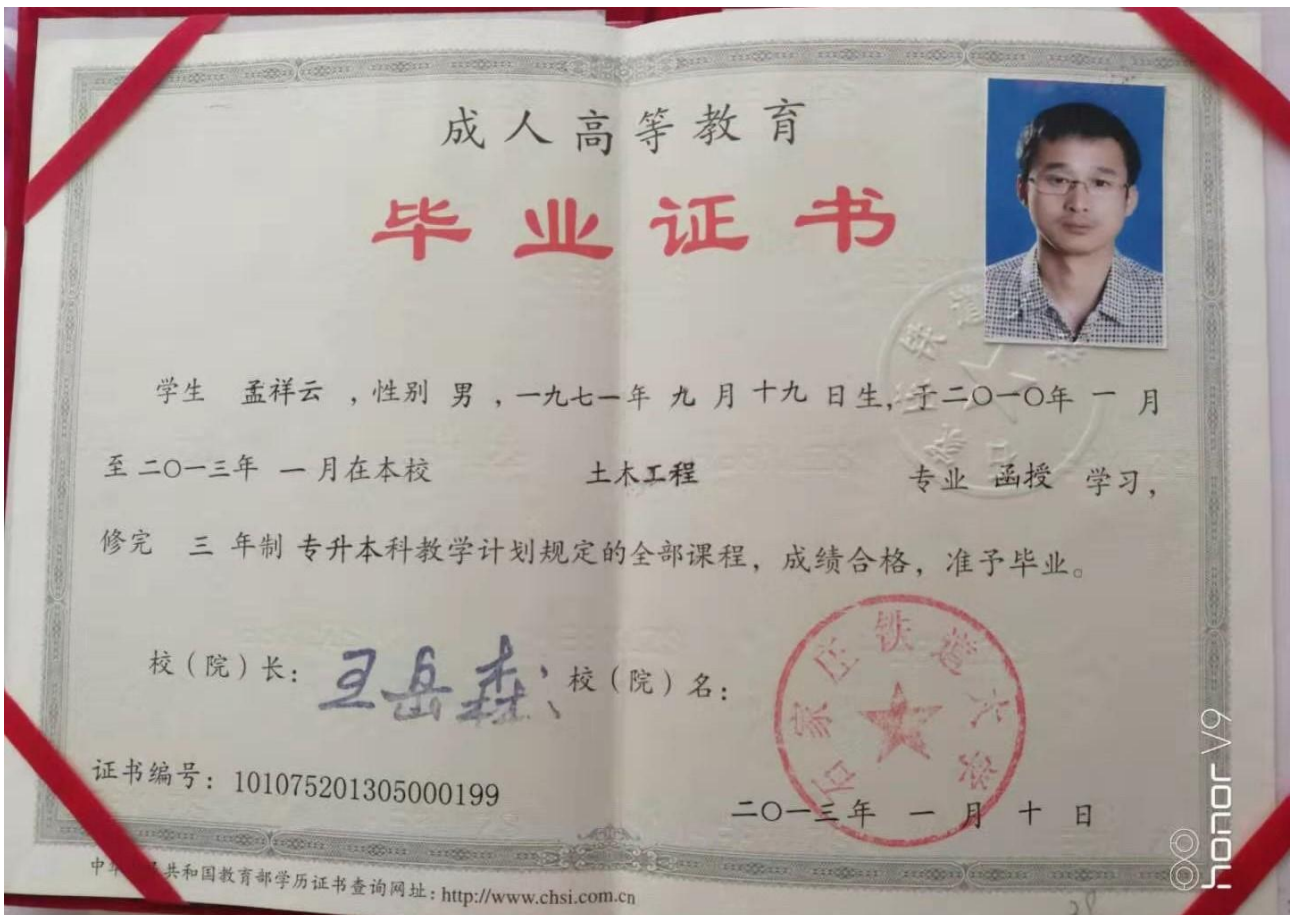 成人高等教育
毕业证书
学生 孟祥云 ，性别 男 ，一九七一年 九 月 十九 日生，于二〇一〇年 一 月
至 二〇一三年 一 月在本校 土木工程 专业 函授 学习，
修完 三 年制 专升本科教学计划规定的全部课程，成绩合格，准予毕业。
校（院）长： 王岳森 校（院）名：
石家庄铁道大学
证书编号：101075201305000199
二〇一三年 一 月 十 日
中华人民共和国教育部学历证书查询网址：http://www.chsi.com.cn
honor V9